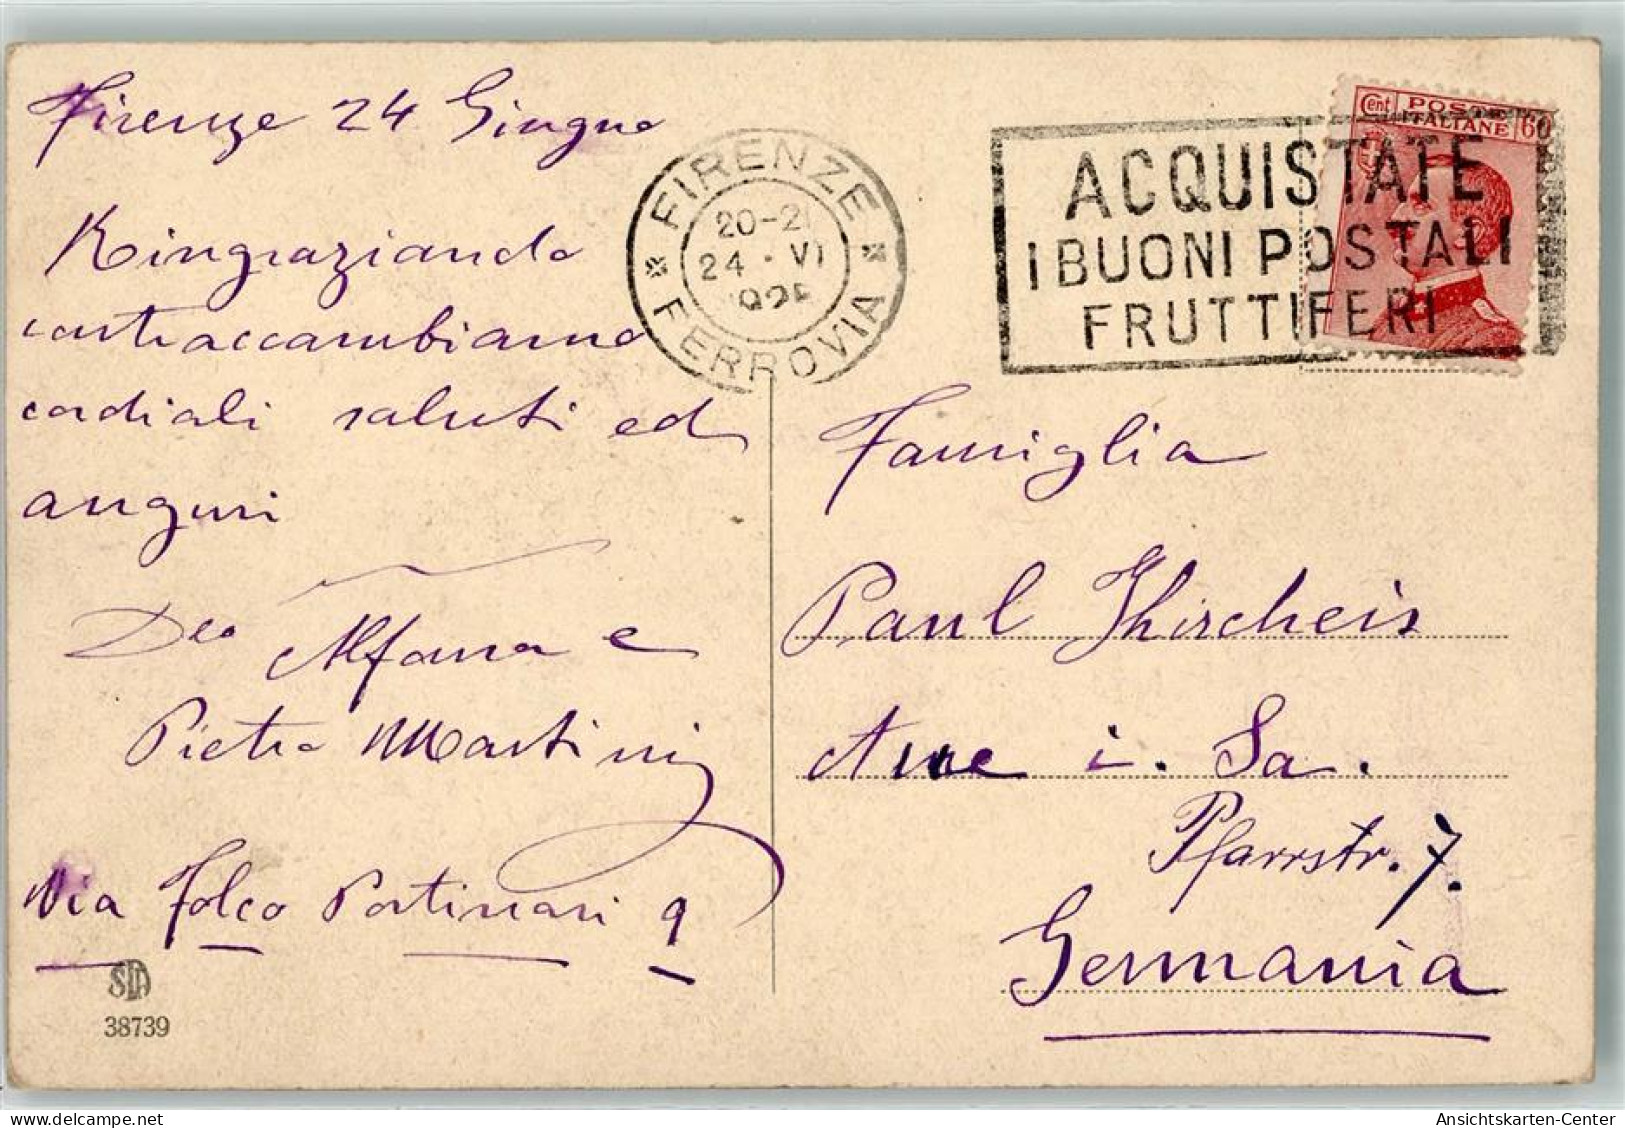 Firenze 24 Giugno
Ringraziando
contraccambiamo
cordiali saluti ed
auguri
Pietro Martini
Via Folco Portinari 9
38739
FIRENZE
20-21
24 · VI
FERROVIA
ACQUISTATE
I BUONI POSTALI
FRUTTIFERI
Cent POSTE 60
ITALIANE
Famiglia
Paul Khircheis
Aue i. Sa.
Pfarrstr. 7.
Germania
Ansichtskarten-Center